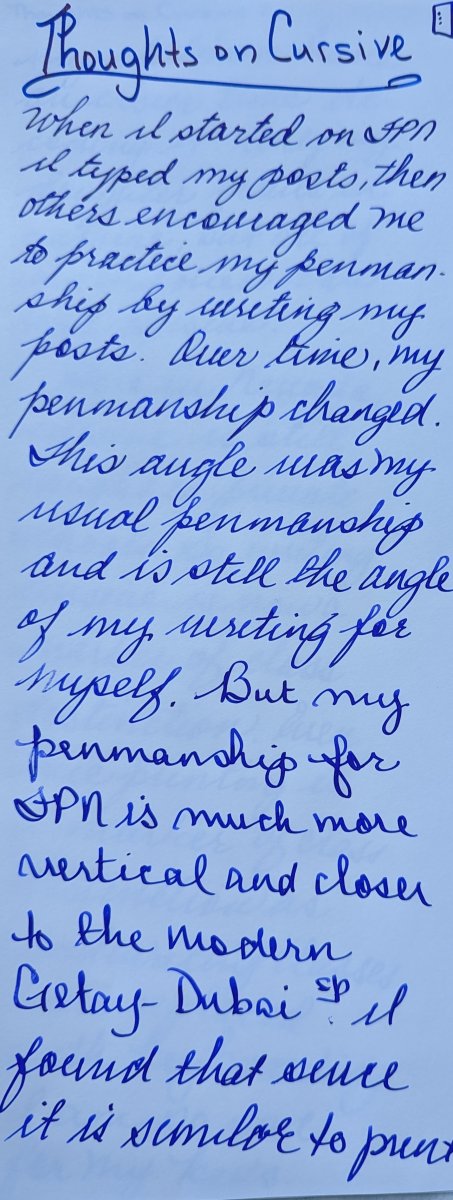 Thoughts on Cursive
When I started on FPN
I typed my posts, then
others encouraged me
to practice my penman-
ship by writing my
posts. Over time, my
penmanship changed.
This angle was my
usual penmanship
and is still the angle
of my writing for
myself. But my
penmanship for
FPN is much more
vertical and closer
to the modern
Getay-Dubai sp? I
found that since
it is similar to print